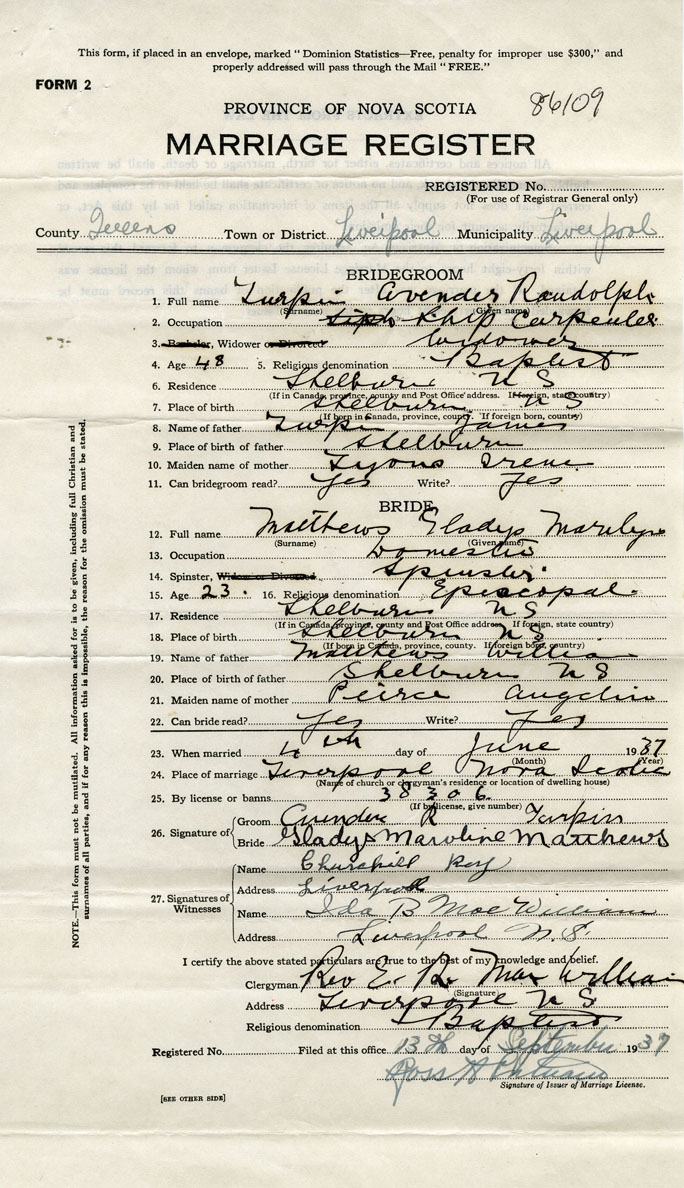 This form, if placed in an envelope, marked "Dominion Statistics—Free, penalty for improper use $300," and
properly addressed will pass through the Mail "FREE."
FORM 2
86109
PROVINCE OF NOVA SCOTIA
MARRIAGE REGISTER
REGISTERED No.
(For use of Registrar General only)
County Queens Town or District Liverpool Municipality Liverpool
BRIDEGROOM
1. Full name Turpin Avender Randolph
(Surname) (Given name)
2. Occupation Ship Carpenter
3. Bachelor, Widower or Divorced Widower
4. Age 48 5. Religious denomination Baptist
6. Residence Shelburn N S
(If in Canada, province, county and Post Office address. If foreign, state country)
7. Place of birth Shelburn N S
(If born in Canada, province, county. If foreign born, country)
8. Name of father Turpin James
9. Place of birth of father Shelburn
10. Maiden name of mother Lyons Irene
11. Can bridegroom read? Yes Write? Yes
BRIDE
12. Full name Matthews Gladys Marilyn
(Surname) (Given name)
13. Occupation Domestic
14. Spinster, Widow or Divorced Spinster
15. Age 23. 16. Religious denomination Episcopal
17. Residence Shelburn N S
(If in Canada, province, county and Post Office address. If foreign, state country)
18. Place of birth Shelburn N S
(If born in Canada, province, county. If foreign born, country)
19. Name of father Matthews William
20. Place of birth of father Shelburn N S
21. Maiden name of mother Peirce Angelin
22. Can bride read? Yes Write? Yes
23. When married day of June 1937
(Month) (Year)
24. Place of marriage Liverpool Nova Scotia
(Name of church or clergyman's residence or location of dwelling house)
25. By license or banns 38306
(If by license, give number)
26. Signature of Groom Avender R Turpin
Bride Gladys Maroline Matthews
27. Signatures of Witnesses
Name Churchill Roy
Address Liverpool
Name Ida B MacWilliam
Address Liverpool N.S.
I certify the above stated particulars are true to the best of my knowledge and belief.
Clergyman Rev E. R. MacWilliam
(Signature)
Address Liverpool N S
Religious denomination Baptist
Registered No. Filed at this office 13th day of September 1937
Ross H
Signature of Issuer of Marriage License.
[SEE OTHER SIDE]
NOTE.—This form must not be mutilated. All information asked for is to be given, including full Christian and
surnames of all parties, and if for any reason this is impossible, the reason for the omission must be stated.